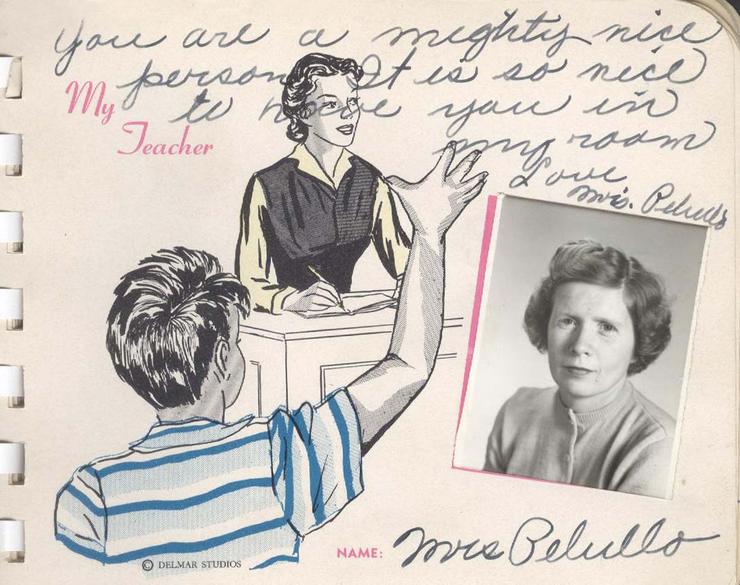 You are a mighty nice
person. It is so nice
to have you in
my room
Love
Mrs. Pelullo
My
Teacher
© DELMAR STUDIOS
NAME: Mrs Pelullo